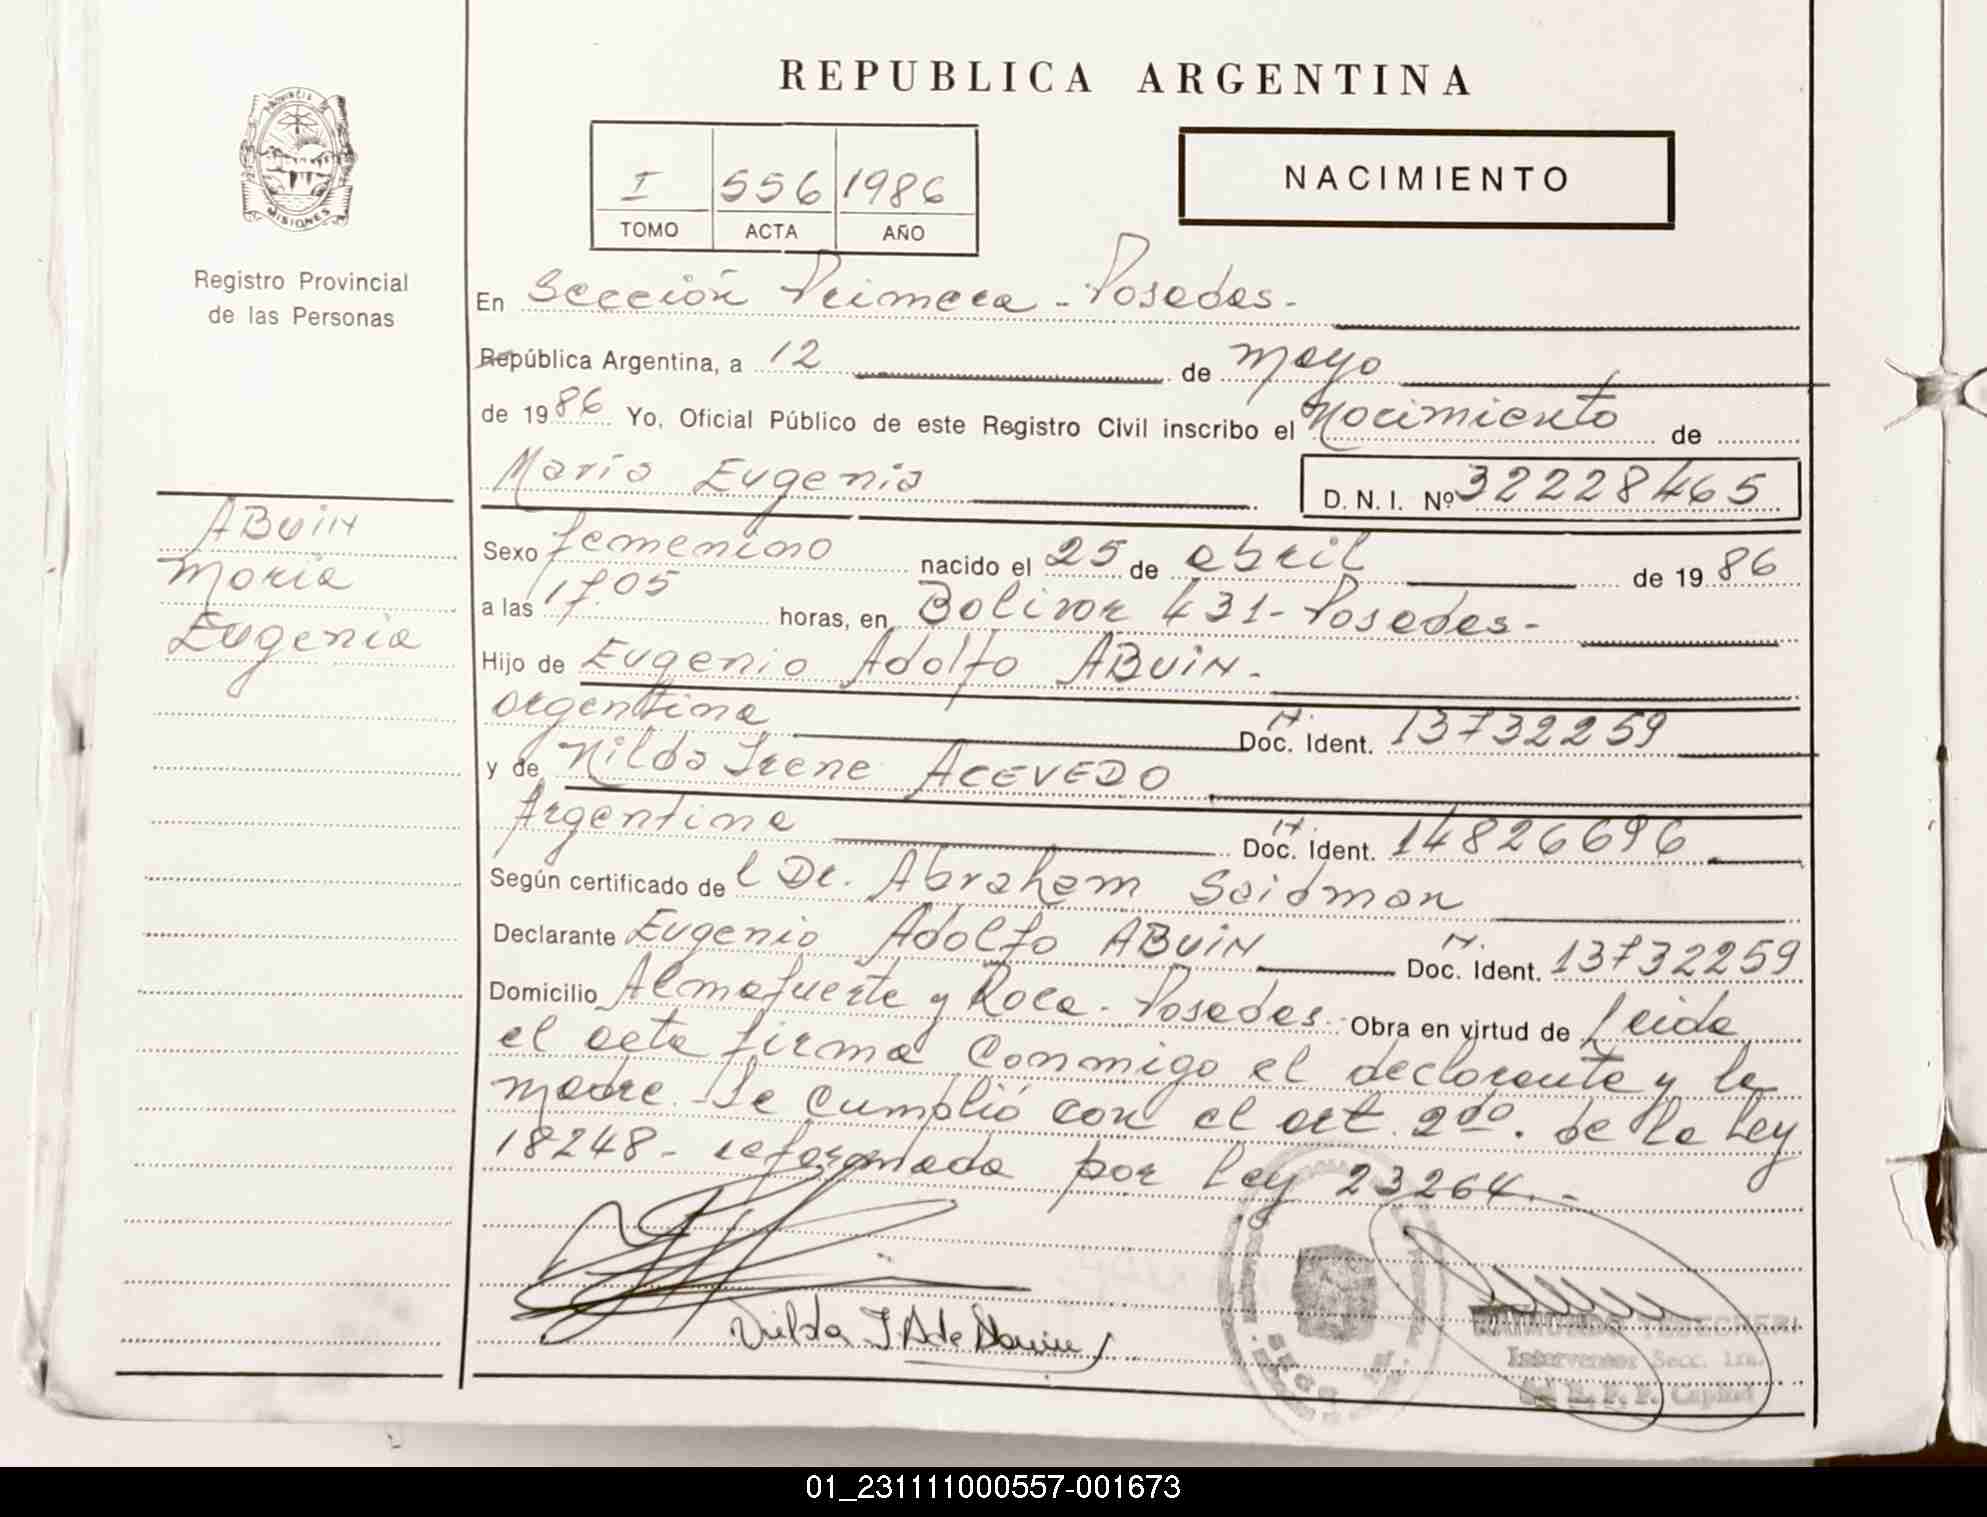 REPUBLICA ARGENTINA
PROVINCIA DE
MISIONES
Registro Provincial
de las Personas
I 556 1986
TOMO ACTA AÑO
NACIMIENTO
En Sección Primera - Posadas -
República Argentina, a 12 de mayo
de 1986 Yo, Oficial Público de este Registro Civil inscribo el Nacimiento de
María Eugenia D.N.I. Nº 32228465
ABUIN
María
Eugenia
Sexo femenino nacido el 25 de abril de 1986
a las 17.05 horas, en Bolivar 431 - Posadas -
Hijo de Eugenio Adolfo ABUIN -
argentina Doc. Ident. 13732259
y de Nilda Irene ACEVEDO
Argentina Doc. Ident. 14826696
Según certificado de l Dr. Abraham Seidman
Declarante Eugenio Adolfo ABUIN Doc. Ident. 13732259
Domicilio Almafuerte y Roca - Posadas - Obra en virtud de Leída
el acta firma conmigo el declarante y la
madre. Se cumplió con el art. 2do. de la Ley
18248 - reformada por Ley 23264. -
Nilda I. A de Abuin
RAIMUNDO
Interventor Secc. 1ra.
del R. P. P. Capital
01_231111000557-001673